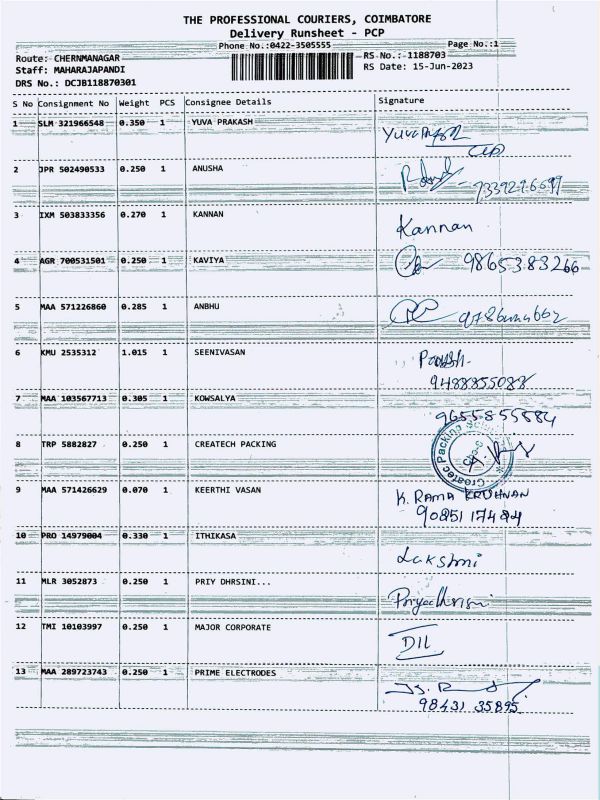 THE PROFESSIONAL COURIERS, COIMBATORE
Delivery Runsheet - PCP
Phone No.:0422-3505555 Page No.:1
Route: CHERNMANAGAR RS No.: 1188703
Staff: MAHARAJAPANDI RS Date: 15-Jun-2023
DRS No.: DCJB118870301
S No Consignment No Weight PCS Consignee Details Signature
1 SLM 321966548 0.350 1 YUVA PRAKASH
2 JPR 502490533 0.250 1 ANUSHA
7339296699
3 IXM 503833356 0.270 1 KANNAN
Kannan
4 AGR 700531501 0.250 1 KAVIYA 9865383266
5 MAA 571226860 0.285 1 ANBHU
6 KMU 2535312 1.015 1 SEENIVASAN
9488855088
7 MAA 103567713 0.305 1 KOWSALYA
9655855884
8 TRP 5882827 0.250 1 CREATECH PACKING
Createc Packing
9 MAA 571426629 0.070 1 KEERTHI VASAN K. RAMA KRISHNAN
9085117484
10 PRO 14979004 0.330 1 ITHIKASA
Lakshmi
11 MLR 3052873 0.250 1 PRIY DHRSINI...
Priyadhrsini
12 TMI 10103997 0.250 1 MAJOR CORPORATE
DIL
13 MAA 289723743 0.250 1 PRIME ELECTRODES
98431 35895